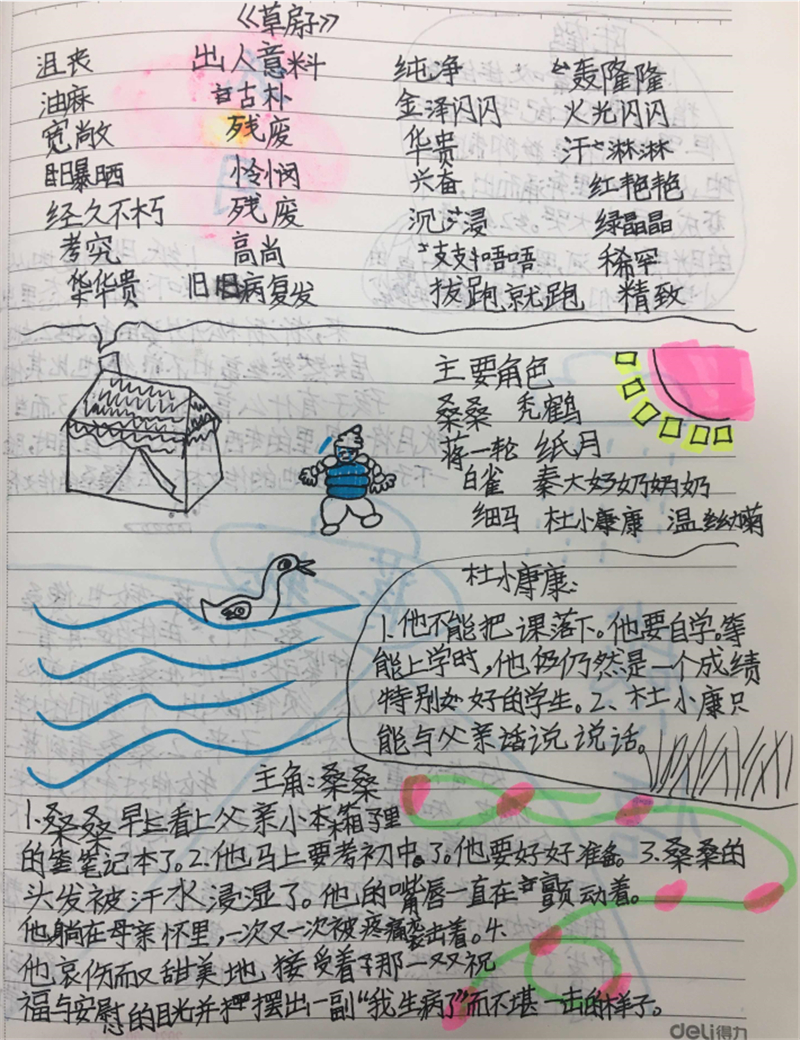 《草房子》
沮丧 出人意料 纯净 轰隆隆
油麻 古朴 金泽闪闪 火光闪闪
宽敞 残废 华贵 汗淋淋
暴晒 怜悯 兴奋 红艳艳
经久不朽 残废 沉浸 绿晶晶
考究 高尚 支支唔唔 稀罕
华华贵 旧病复发 拔跑就跑 精致
主要角色
桑桑 秃鹤
蒋一轮 纸月
白雀 秦大奶奶奶奶
细马 杜小康康 温幼菊
杜小康康:
1.他不能把课落下。他要自学。等
能上学时,他仍仍然是一个成绩
特别好的学生。2、杜小康只
能与父亲话说说话。
主角:桑桑
1.桑桑早上看上父亲小本箱子里
的笔记本了。2.他马上要考初中了。他要好好准备。3.桑桑的
头发被汗水浸湿了。他的嘴唇一直在颤动着。
他躺在母亲怀里,一次又一次被疼痛袭击着。4.
他哀伤而又甜美地接受着那一双双祝
福与安慰的目光并摆出一副“我生病了”而不堪一击的样子。
deli得力